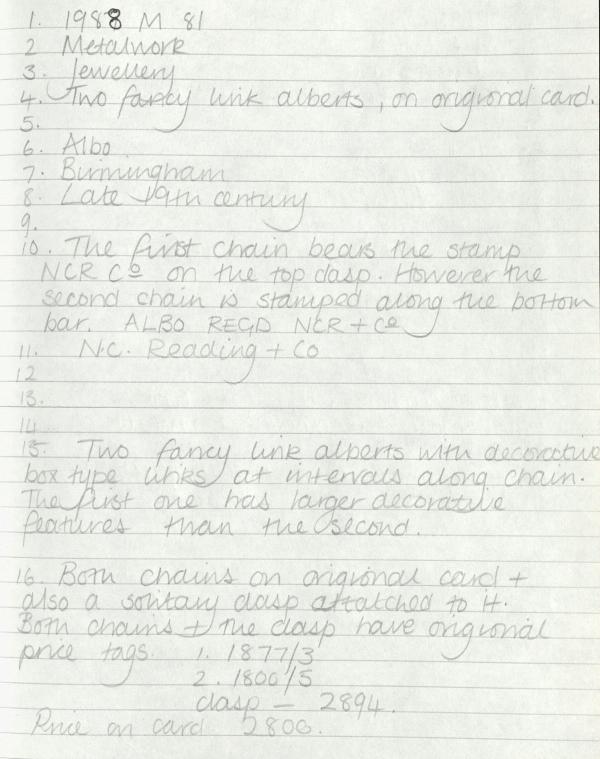 1. 1988 M 81
2 Metalwork
3. Jewellery
4. Two fancy link alberts, on origional card.
5.
6. Albo
7. Birmingham
8. Late 19th century
9.
10. The first chain bears the stamp
NCR Co on the top clasp. However the
second chain is stamped along the bottom
bar. ALBO REGD NCR + Co
11. N.C. Reading + Co
12
13.
14
15. Two fancy link alberts with decorative
box type links at intervals along chain.
The first one has larger decorative
features than the second.
16. Both chains on origional card +
also a solitary clasp attatched to it.
Both chains + the clasp have origional
price tags. 1. 1877/3
2. 1800/5
clasp — 2894.
Price on card 2800.